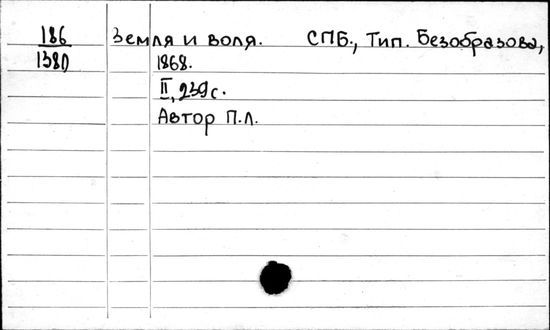 186 Земля и воля. СПБ., Тип. Безобразова,
1380 1868.
II, 239 с.
Автор П.Л.